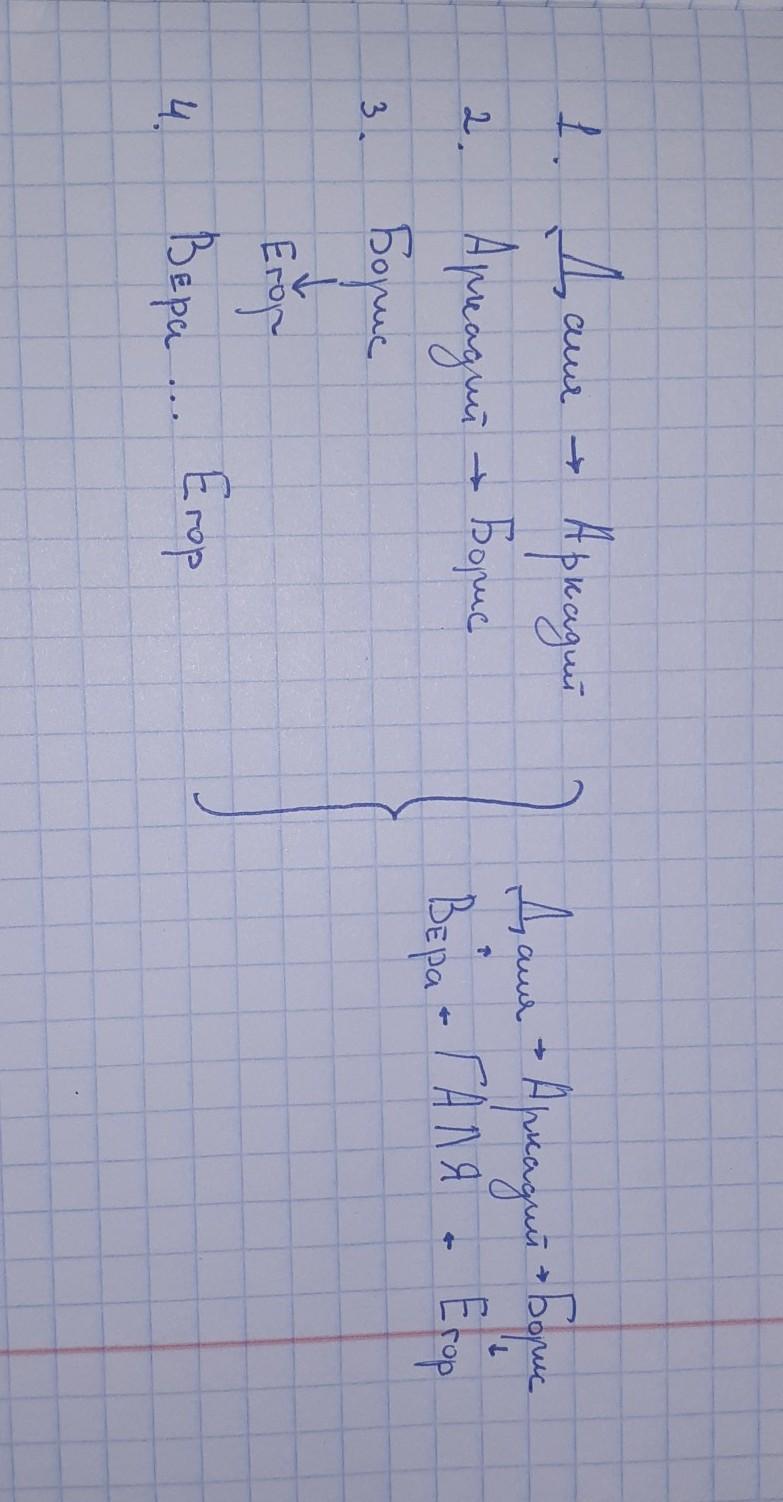 1. Даля → Аркадий
2. Аркадий → Борис
3. Борис
↓
Егор
4. Вера ... Егор
Даля → Аркадий → Борис
↑ ↓
Вера ← ГАЛЯ ← Егор